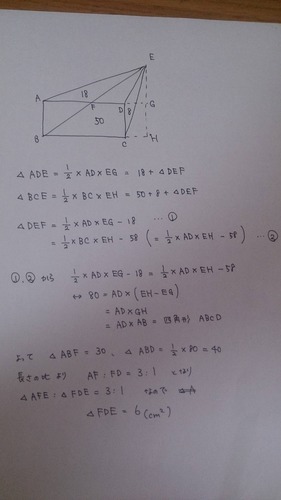 E
A 18 F D G
8
50
B C H
△ADE = 1/2 × AD × EG = 18 + △DEF
△BCE = 1/2 × BC × EH = 50 + 8 + △DEF
△DEF = 1/2 × AD × EG − 18 … ①
= 1/2 × BC × EH − 58 ( = 1/2 × AD × EH − 58 ) … ②
①,②から 1/2 × AD × EG − 18 = 1/2 × AD × EH − 58
↔ 80 = AD × (EH − EG)
= AD × GH
= AD × AB = 四角形 ABCD
よって △ABF = 30, △ABD = 1/2 × 80 = 40
長さの比より AF : FD = 3 : 1 となり
△AFE : △FDE = 3 : 1 なので
△FDE = 6 (cm²)